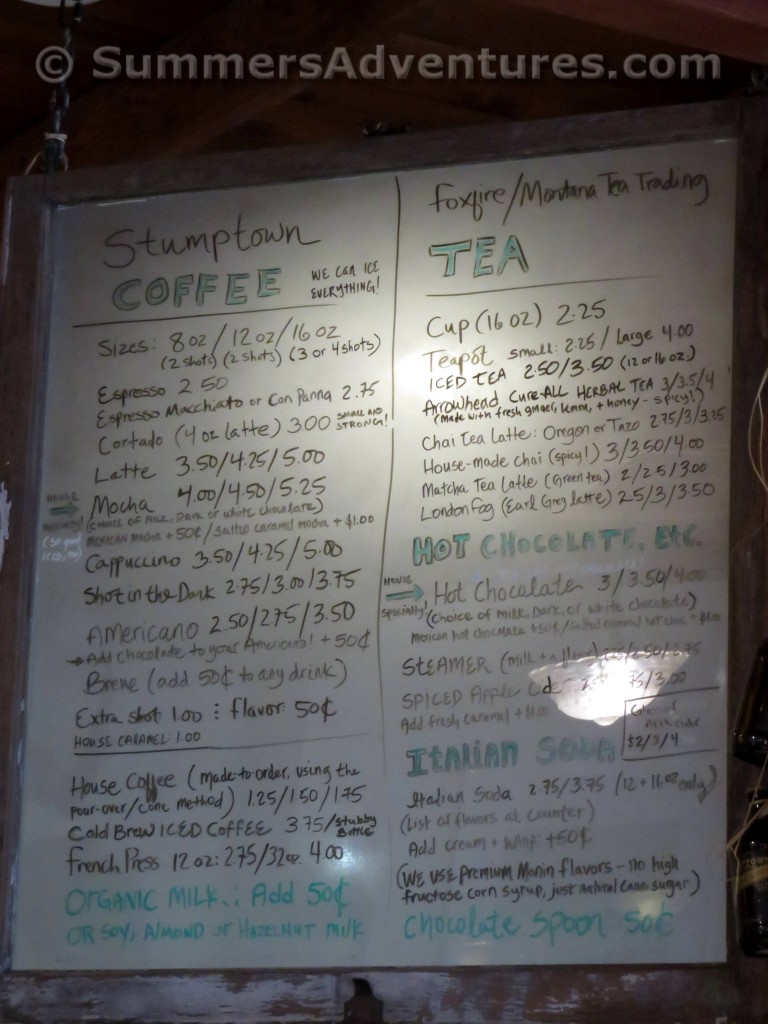 © SummersAdventures.com
Stumptown
COFFEE
WE CAN ICE
EVERYTHING!
Sizes: 8 oz / 12 oz / 16 oz
(2 shots) (2 shots) (3 or 4 shots)
Espresso 2 50
Espresso Macchiato or Con Panna 2.75
Cortado (4 oz latte) 3.00 SMALL AND
STRONG!
Latte 3.50/4.25/5.00
HOUSE
Mocha 4.00/4.50/5.25
(CHOICE OF MILK, DARK or white chocolate)
MEXICAN Mocha + 50¢ / Salted caramel mocha + $1.00
Cappuccino 3.50/4.25/5.00
Shot in the Dark 2.75/3.00/3.75
Americano 2.50/2.75/3.50
Add chocolate to your Americano! + 50¢
Breve (add 50¢ to any drink)
Extra shot 1.00 : flavor 50¢
HOUSE CARAMEL: 1.00
House Coffee (made-to-order, using the
pour-over/cone method) 1.25/1.50/1.75
Cold Brew ICED COFFEE 3.75/stubby
Bottle
French Press 12 oz: 2.75/32 oz. 4.00
ORGANIC MILK.: Add 50¢
OR SOY, ALMOND or HAZELNUT milk
Foxfire/Montana Tea Trading
TEA
Cup (16 oz) 2.25
Teapot small: 2.25 / Large 4.00
ICED TEA 2.50/3.50 (12 or 16 oz.)
Arrowhead Cure-ALL HERBAL TEA 3/3.5/4
(Made with fresh ginger, lemon, + honey - spicy!)
Chai Tea Latte: Oregon or Tazo 2.75/3/3.25
House-made chai (spicy!) 3/3.50/4.00
Matcha Tea Latte (Green tea) 2/2.5/3.00
London Fog (Earl Grey latte) 2.5/3/3.50
HOT CHOCOLATE, ETC.
HOUSE
Specialty!
Hot Chocolate 3/3.50/4.00
(Choice of milk, Dark, or white chocolate)
Mexican hot chocolate + 50¢ / Salted caramel hot choc +
STEAMER (milk + a flavor)
SPICED Apple
/3.00
Add fresh caramel +
$2/3/4
Italian SODA
Italian Soda 2.75/3.75 (12 + 16 oz only)
(List of flavors at counter)
Add cream + whip: +50¢
(We use premium Monin flavors - no high
fructose corn syrup, just natural cane sugar)
Chocolate Spoon 50¢